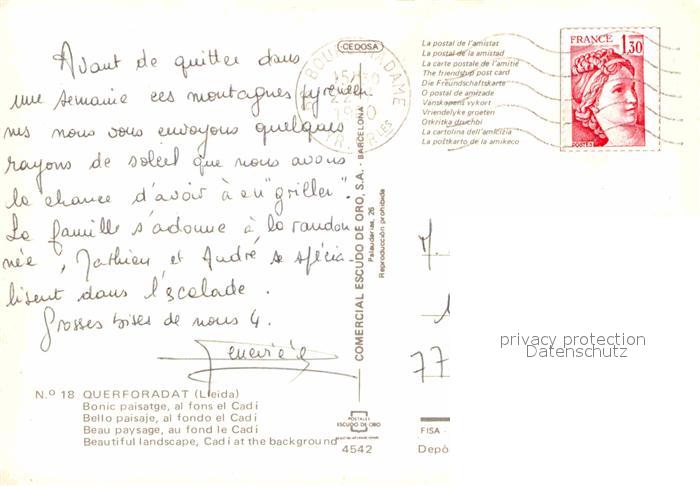 Avant de quitter dans
une semaine ces montagnes pyréneen
nes nous vous envoyons quelques
rayons de soleil que nous avons
la chance d'avoir à en "griller".
La famille s'adonne à la randon
née, Mathieu et André se spécia-
lisent dans l'escalade.
Grosses bises de nous 4.
Geneviève
N.º 18 QUERFORADAT (Lleida)
Bonic paisatge, al fons el Cadí
Bello paisaje, al fondo el Cadí
Beau paysage, au fond le Cadí
Beautiful landscape, Cadí at the background
CEDOSA
COMERCIAL ESCUDO DE ORO, S.A. - BARCELONA
Palaudarias, 26
Reproducción prohibida
POSTALES
ESCUDO DE ORO
4542
La postal de l'amistat
La postal de la amistad
La carte postale de l'amitié
The friendship post card
Die Freundschaftskarte
O postal de amizade
Vanskapens vykort
Vriendelyke groeten
Otkritka druchbi
La cartolina dell'amicizia
La poŝtkarto de la amikeco
FRANCE
1,30
POSTES
M.
77
privacy protection
Datenschutz
FISA -
Depò